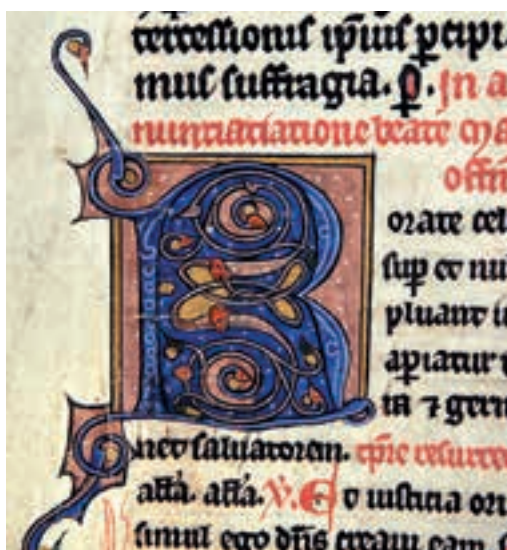 tercessionis ip̄ius ꝑcipi
mus suffragia. P. In a
nuntiatiatione beate ma
R orate cel
suꝑ et nu
pluant
aꝑiatur
ra ⁊ germ
net saluatorem. tp̄re resurrec
all'a. all'a. V. Et iusticia ori
simul ego dn̄s creaui eam.